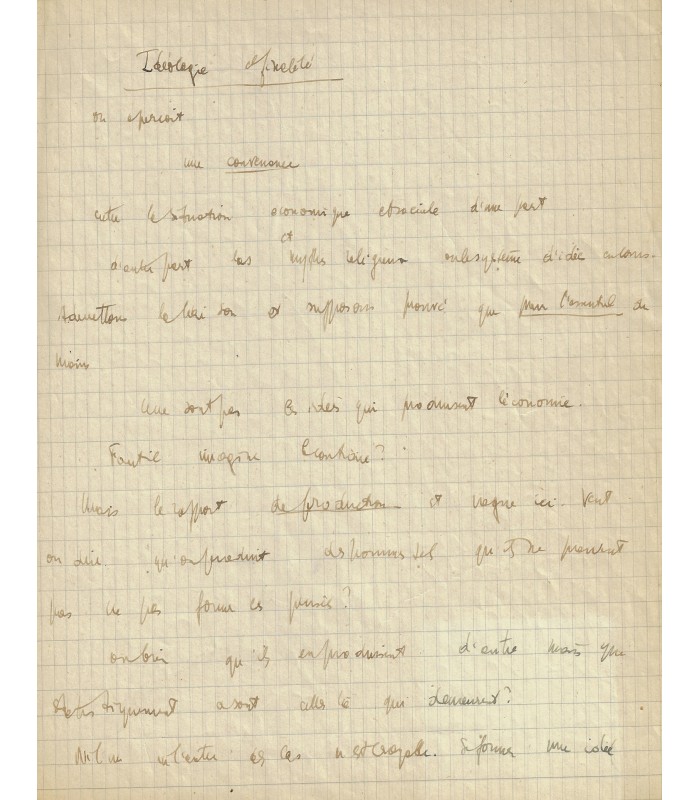 Idéologie et finalité
on aperçoit
une convenance
entre la situation économique et sociale d'une part
et
d'autre part les mythes religieux ou le système d'idée
Admettons la liaison et supposons prouvé que pour l'essentiel du
moins
Ce ne sont pas les idées qui produisent l'économie.
Faut il imaginer le contraire?
Mais le rapport de production est vague ici. Veut
on dire qu'on produit des hommes tels qu'ils ne peuvent
pas ne pas former ces pensées?
ou bien qu'ils en produisent d'autre mais que
ce sont celles là qui demeurent?
Ni l'un ni l'autre cas n'est croyable. Se former une idée